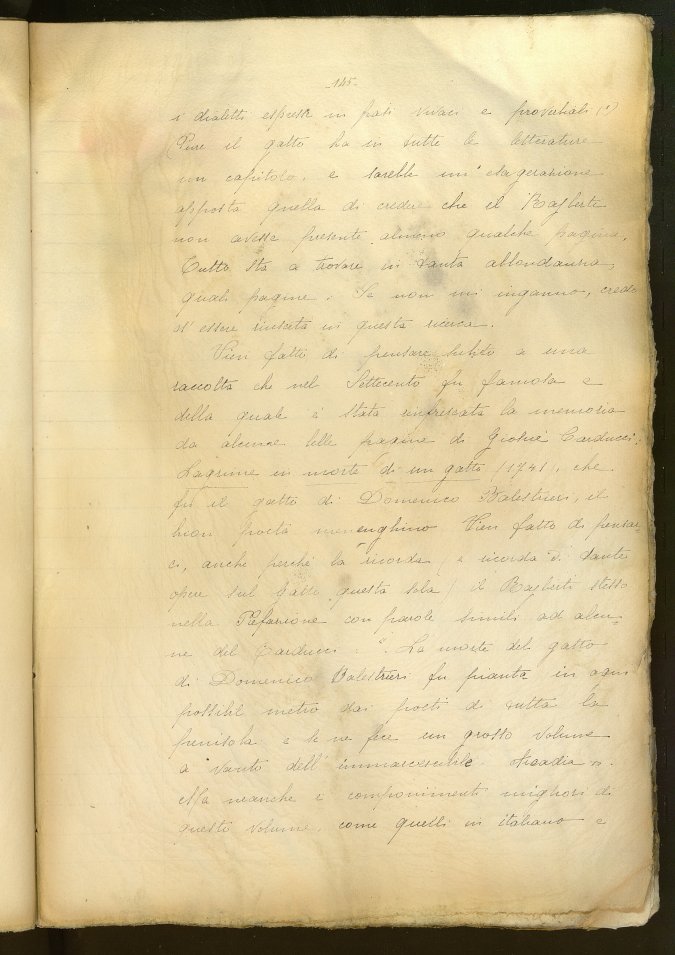 -145-
i dialetti espresse in frasi vivaci e proverbiali (1)
Pure il gatto ha in tutte le letterature
un capitolo, e sarebbe un' esagerazione
apposta quella di credere che il Raiberti
non avesse presente almeno qualche pagina.
Tutto sta a trovare, in tanta abbondanza,
quali pagine. Se non mi inganno, credo
d' essere riuscita in questa ricerca.
Vien fatto di pensare subito a una
raccolta che nel Settecento fu famosa e
della quale è stata rinfrescata la memoria
da alcune belle pagine di Giosuè Carducci:
Lagrime in morte di un gatto (1741), che
fu il gatto di Domenico Balestrieri, il
buon poeta meneghino. Vien fatto di pensar-
ci, anche perchè la ricorda (e ricorda di tante
opere sul gatto questa sola) il Raiberti stesso
nella Prefazione con parole simili ad alcu-
ne del Carducci: ". La morte del gatto
di Domenico Balestrieri fu pianta in ogni
possibil metro dai poeti di tutta la
penisola e se ne fece un grosso volume
a vanto dell' immarcescibile Arcadia".
Ma neanche i componimenti migliori di
questo volume, come quelli in italiano e